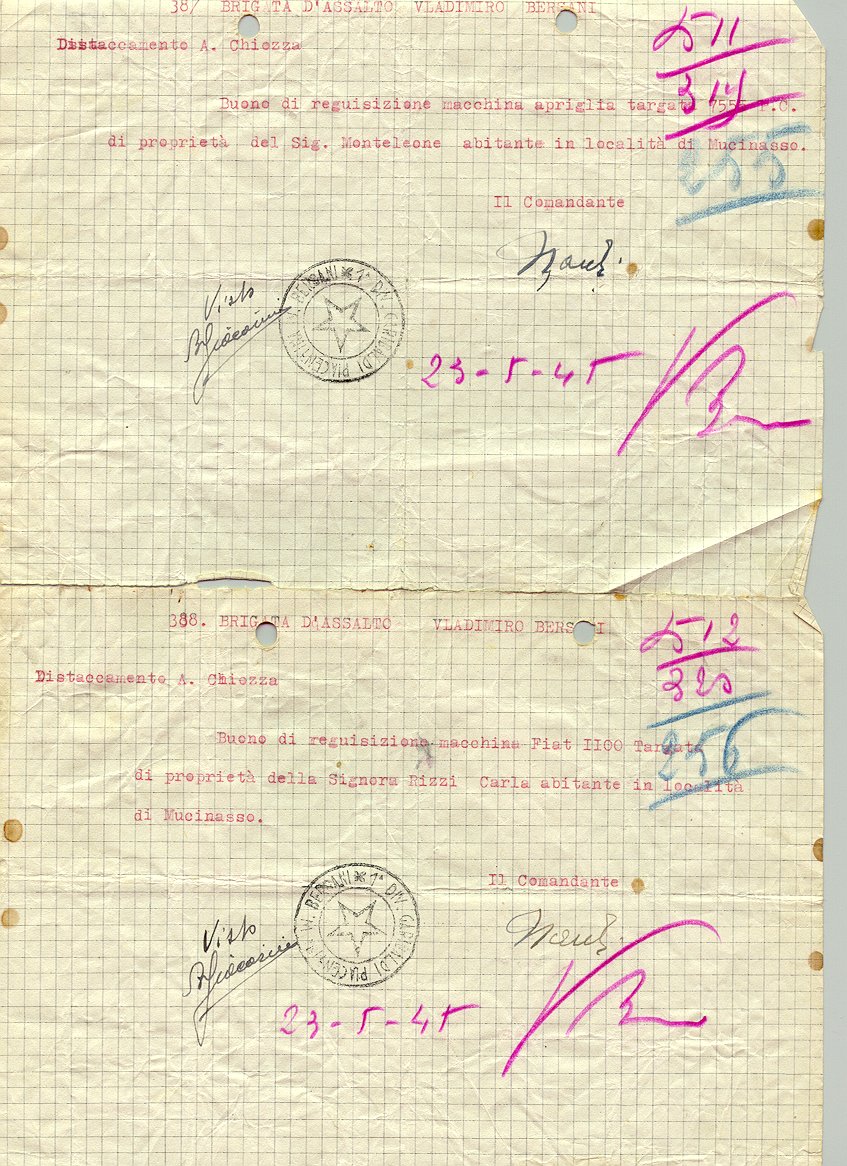 38/ BRIGATA D'ASSALTO VLADIMIRO BERSANI
511
Distaccamento A. Chiozza
314
Buono di reguisizione macchina apriglia targat
di proprietà del Sig. Monteleone abitante in località di Mucinasso.
255
Il Comandante
Visto
BERSANI * 1ª DIV. GARIBALDI PIACENTINA
23-5-45
388. BRIGATA D'ASSALTO VLADIMIRO BERS I
512
Distaccamento A. Chiozza
325
Buono di reguisizione macchina Fiat II00 Targat
256
di proprietà della Signora Rizzi Carla abitante in località
di Mucinasso.
Il Comandante
Visto
BERSANI * 1ª DIV. GARIBALDI PIACENTINA
23-5-45